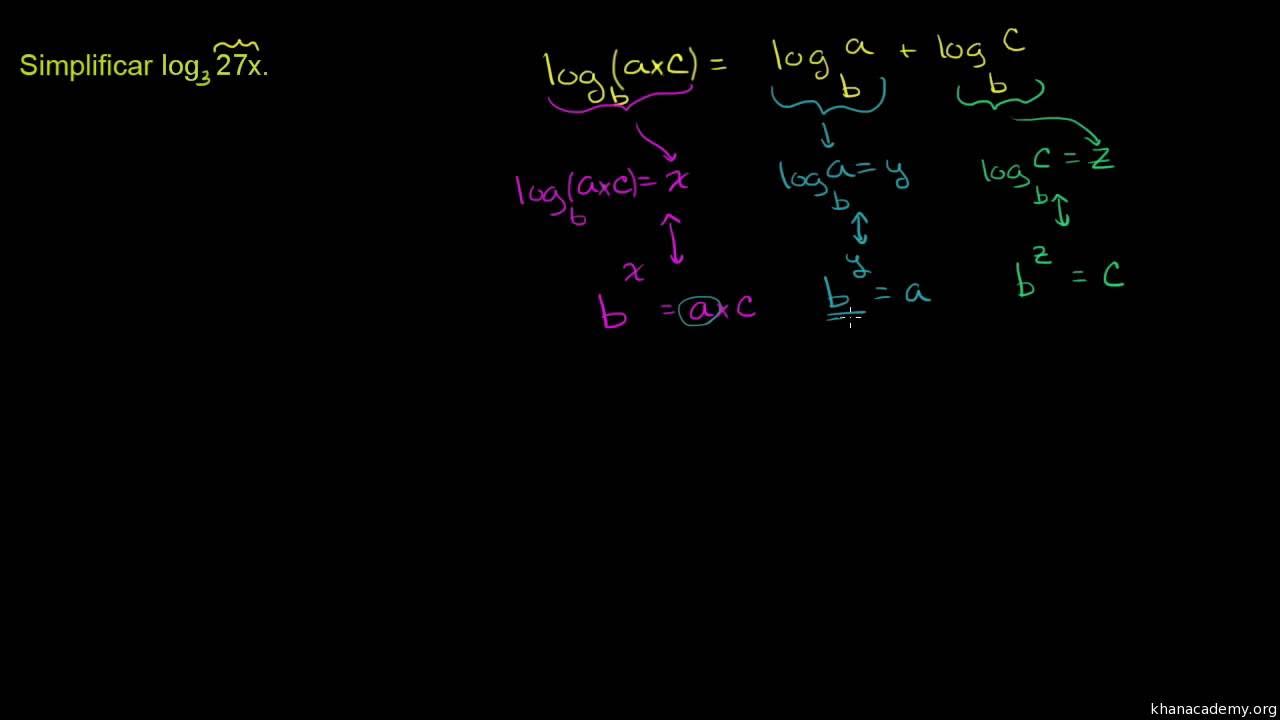 Simplificar log₃ 27x.
log_b(a×c) = log_b a + log_b c
log_b(a×c) = x
log_b a = y
log_b c = z
b^x = a×c
b^y = a
b^z = c
khanacademy.org